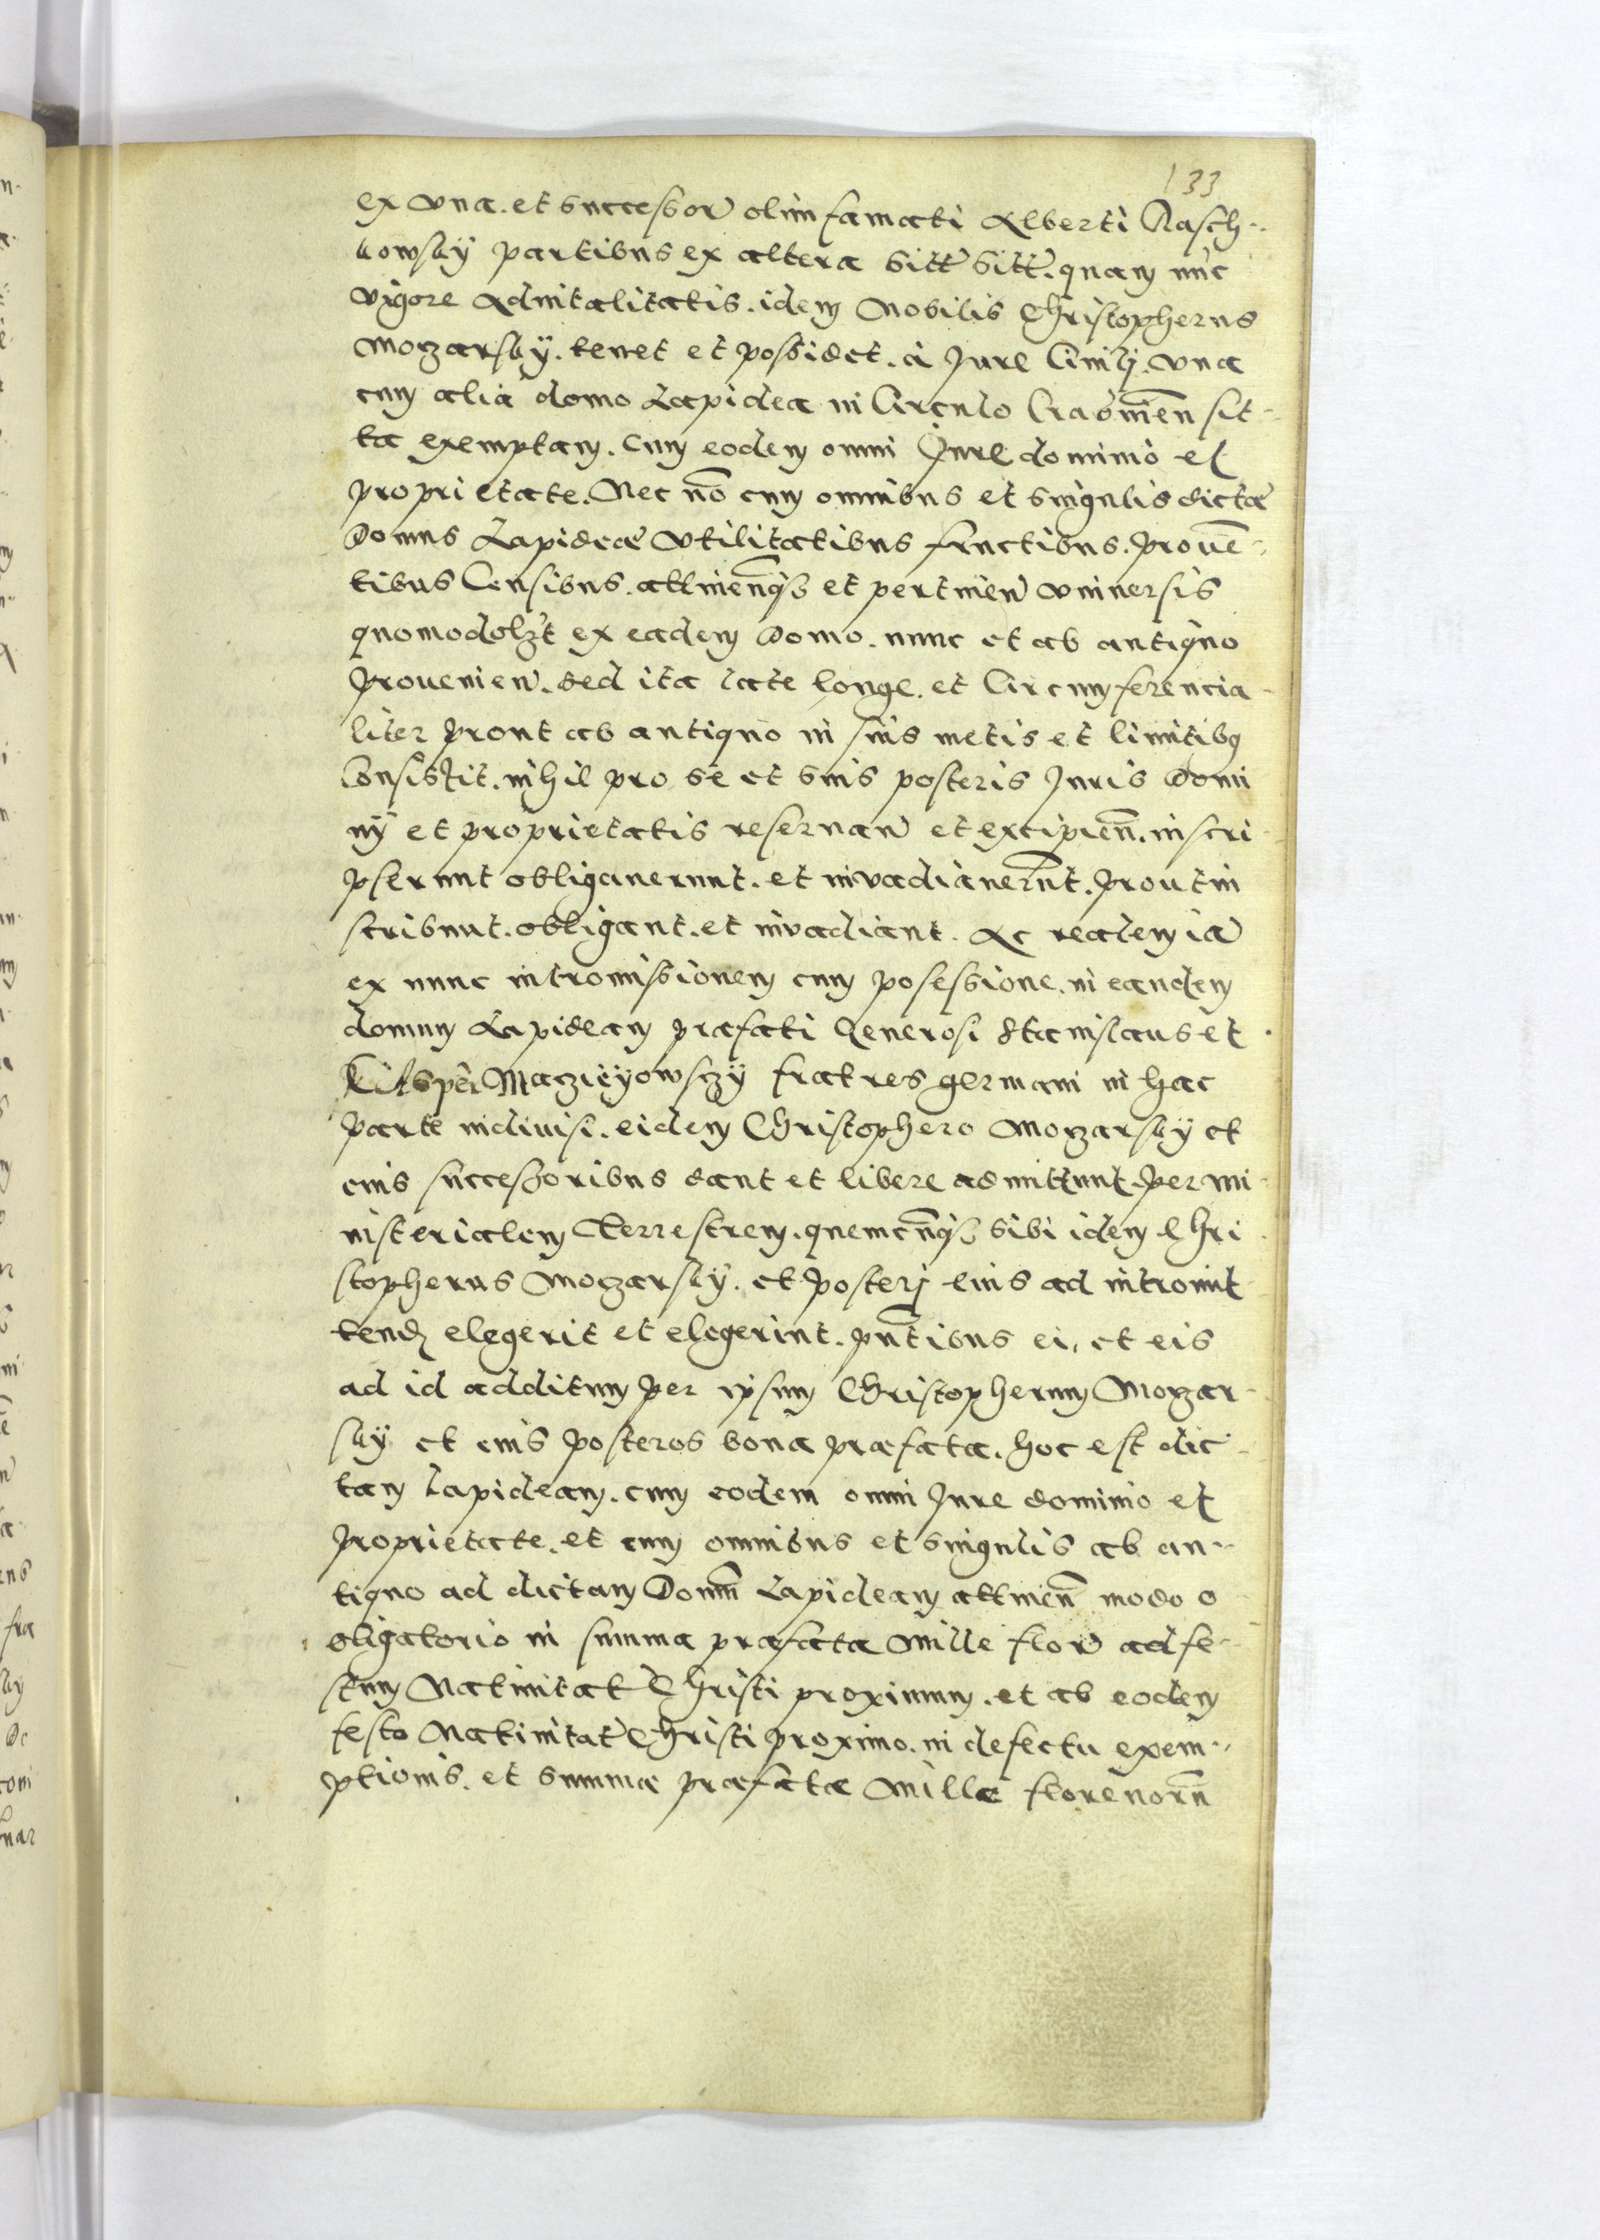 133
ex vna. et successor̃ olim famati Alberti Rasch-
kowsky partibus ex altera sitt sitt. quam nũc
vigore Aduitalitatis. idem Nobilis Christopherus
Mozarsky. tenet et possidet. a Jure Ciuilj. vna
cum alia domo Lapidea in Circulo Cracouieñ sit-
ta exemptam. Cum eodem omni Jure dominio et
proprietate. Nec nõ cum omnibus et singulis dictæ
Domus Lapideæ vtilitatibus fructibus. prouẽ-
tibus Censibus. attineñqz et pertineñ vniuersis
quomodolz̃t ex eadem Domo. nunc et ab antiquo
prouenieñ. sed ita late longe. et Circumferencia-
liter prout ab antiquo in suis metis et limitibꝫ
Consistit. nihil pro se et suis posteris Juris Domi
nÿ et proprietatis reseruañ et excipieñ. inscri
pserunt obligauerunt. et inuadiauerũt. prout in
scribunt. obligant. et inuadiant. Ac realem iã
ex nunc intromissionem cum posessione. in eandem
domum Lapideam præfati Generosi Stanislaus et
Casper Maczieyowsczÿ fratres germani in hac
parte indiuisi. eidem Christophero Mozarskÿ et
eius successoribus dant et libere admittunt. Per mi
nisterialem Terrestrem. quemcũqz sibi idem Chri
stopherus Mozarskÿ. et posterj eius ad intromit
tend elegerit et elegerint. pñtibus ei, et eis
ad id additum per ipsum Christopherum Mozar-
skÿ et eius posteros bona præfata. hoc est dic-
tam Lapideam. cum eodem omni Jure dominio et
proprietate. et cum omnibus et singulis ab an-
tiquo ad dictam Domũ Lapideam attineñ modo o
bligatorio in summa præfata Mille flor̃ ad fe-
stum Natiuitat̃ Christi proximum. et ab eodem
festo Natiuitat̃ Christi proximo. in defectu exem-
ptionis. et summæ præfatæ Mille florenorũ